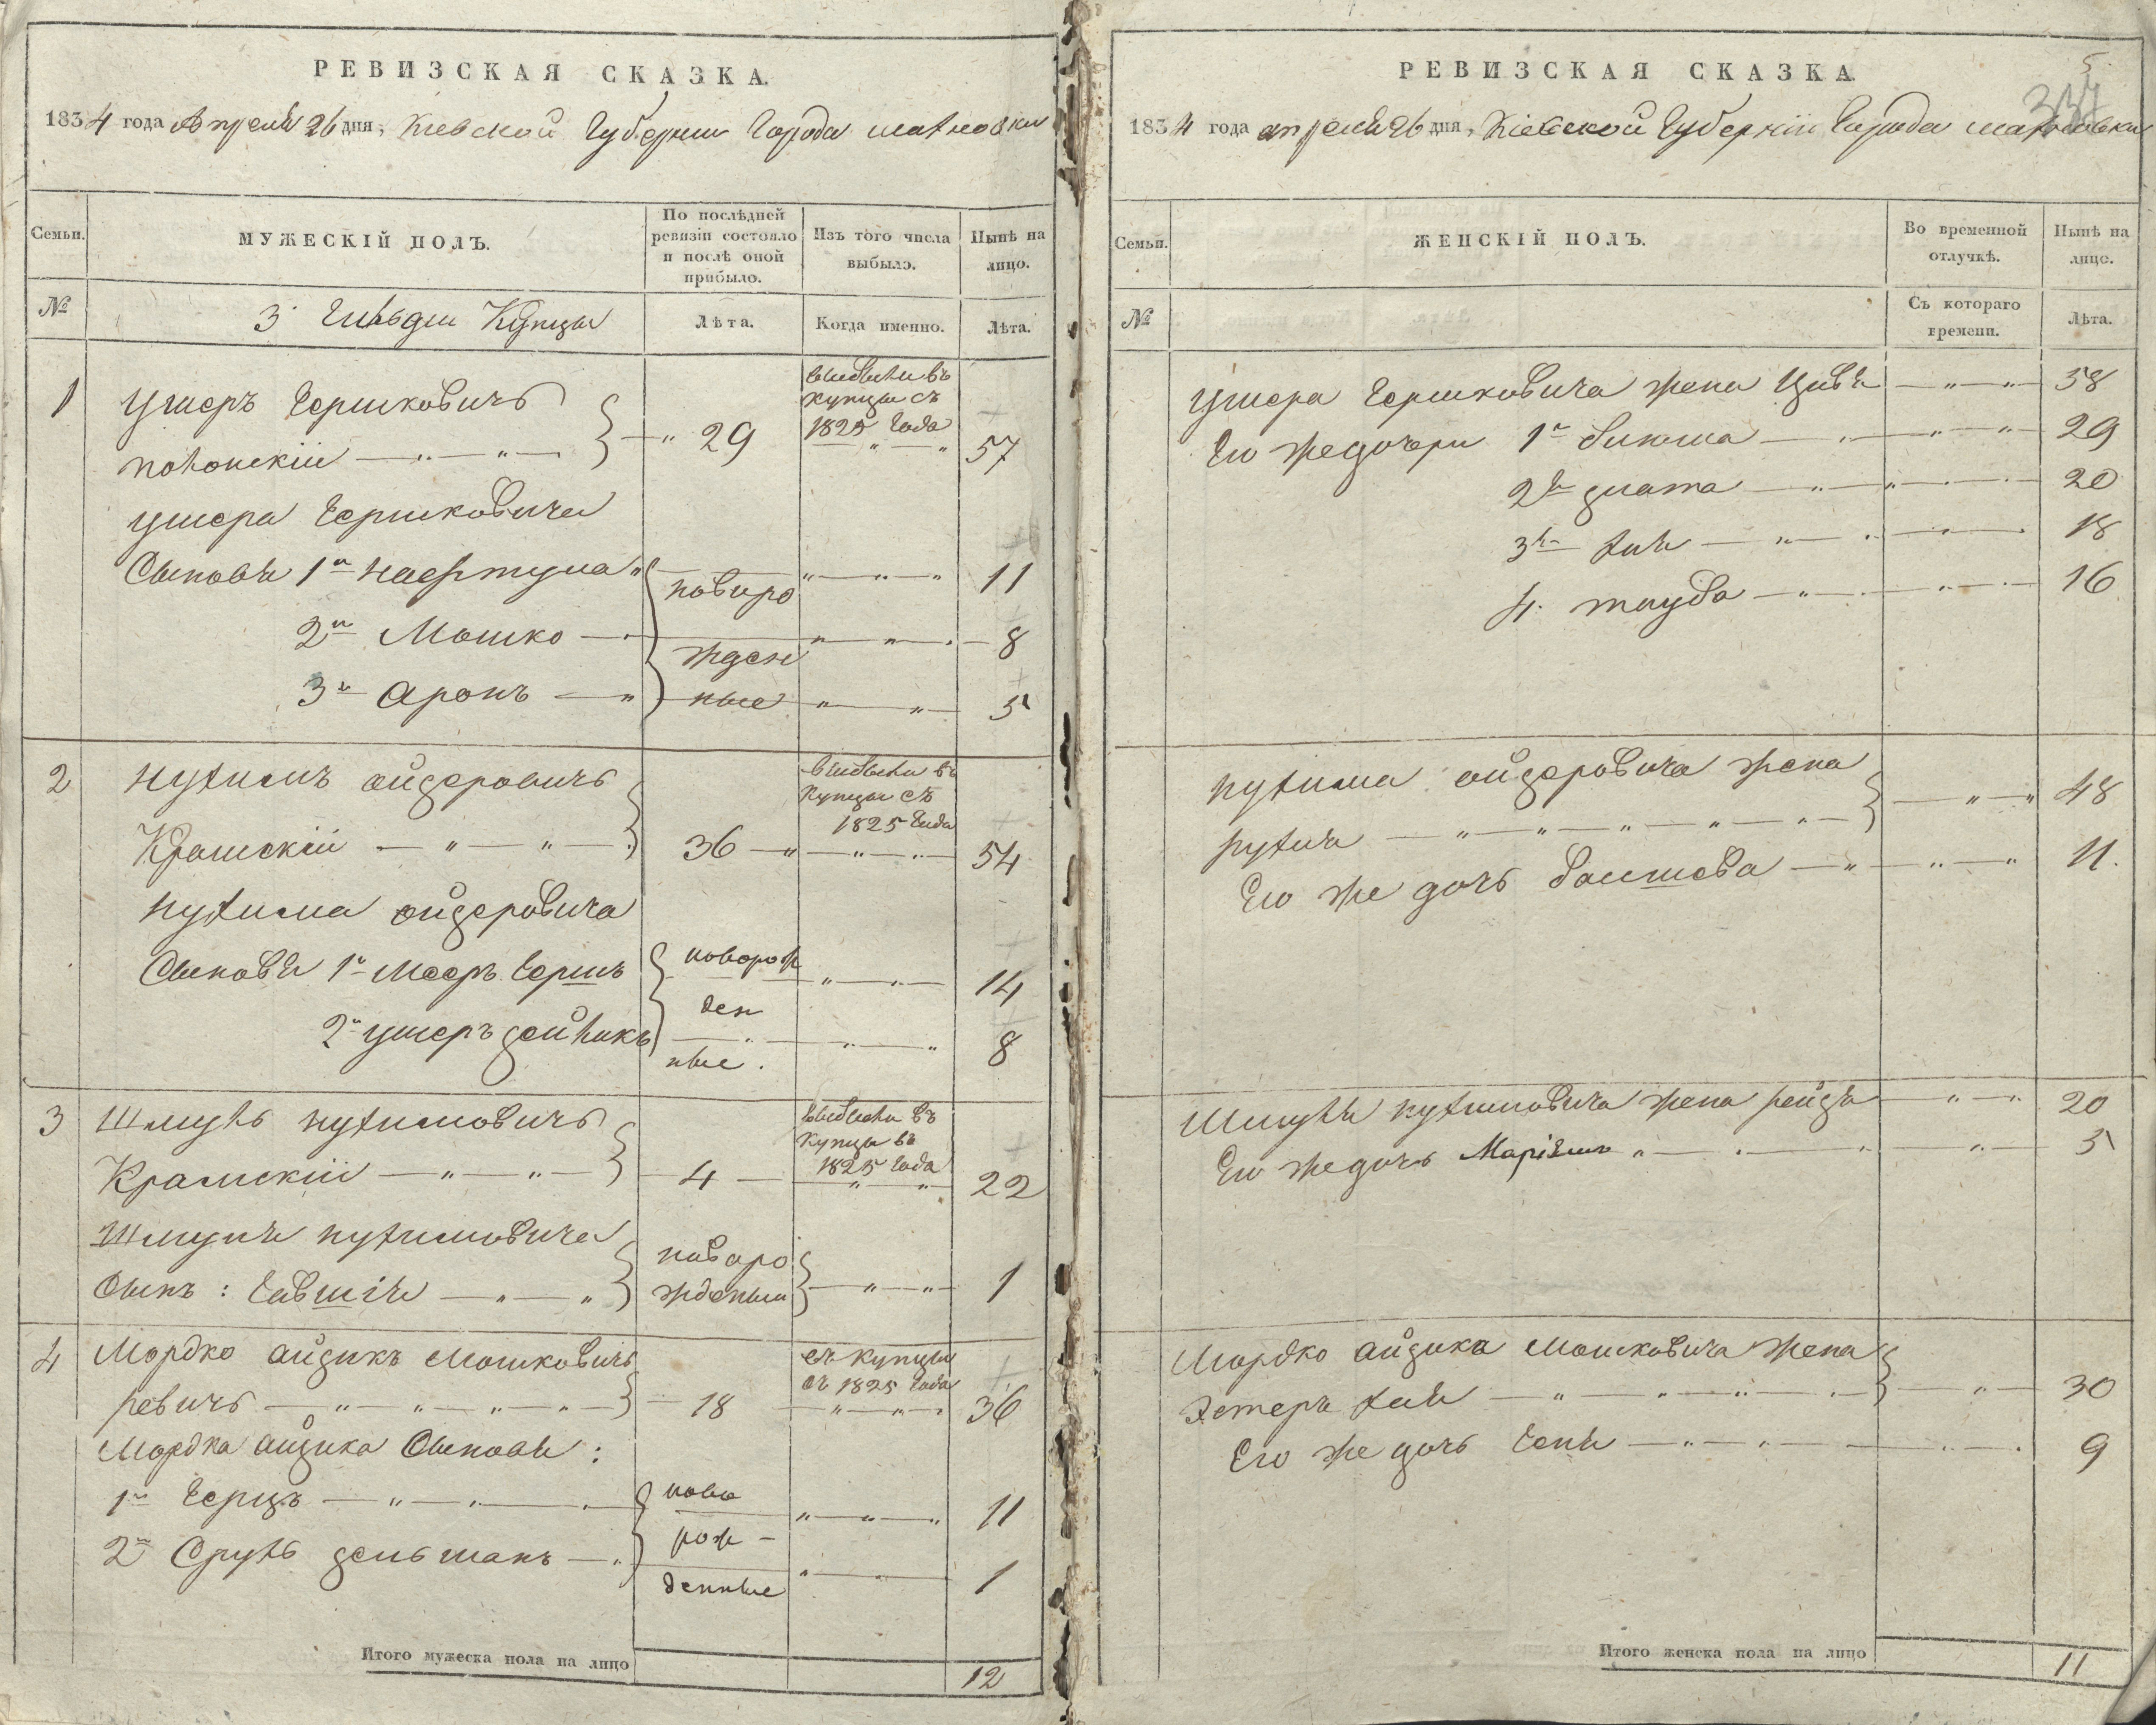 РЕВИЗСКАЯ СКАЗКА.
1834 года Апреля 26 дня, Киевской Губернии Города Махновки
Семьи.
МУЖЕСКІЙ ПОЛЪ.
По послѣдней ревизіи состояло и послѣ оной прибыло.
Изъ того числа выбыло.
Нынѣ на лицо.
№
3 Гильдіи Купцы
Лѣта.
Когда именно.
Лѣта.
1 Ушеръ Гершковичъ
29
въ купцы съ 1825 Года
57
Ушера Гершковича
Сыновья 1й
новоро
11
2й Мошко
жден
8
3й Аронъ
ные
5
2 Нухимъ Айзеровичъ
Крамскій
36
въ купцы съ 1825 Года
54
Нухима Айзеровича
Сыновья 1й Мееръ Гершъ
новорож
14
2й Ушеръ Зейликъ
ден
ные.
8
3 Шмуль Нухимовичъ
Крамскій
4
въ купцы въ 1825 Года
22
Шмуля Нухимовича
новоро
Сынъ:
жденый
1
4 Мордко Айзикъ Мошковичъ
ревичъ
18
въ купцы съ 1825 Года
36
Мордка Айзика Сыновья:
1й Герцъ
ново
11
2й Сруль Зельманъ
рож-
денные
1
Итого мужеска пола на лицо
12
5
337
РЕВИЗСКАЯ СКАЗКА.
1834 года апреля 26 дня, Кіевской Губерніи Города Махновки
Семьи.
ЖЕНСКІЙ ПОЛЪ.
Во временной отлучкѣ.
Нынѣ на лицо.
№
Съ котораго времени.
Лѣта.
Ушера Гершковича жена Цивья
58
Его же дочери 1я
29
2я Злата
20
3я Хая
18
4. Тауба
16
Нухима Айзеровича жена
Рухля
48
Его же дочь Басшева
11.
Шмуля Нухимовича жена Рейзя
20
Его же дочь Маріям
5
Мордко Айзика Мошковича жена
Эстеръ Хая
30
Его же дочь Геня
9
Итого женска пола на лицо
11